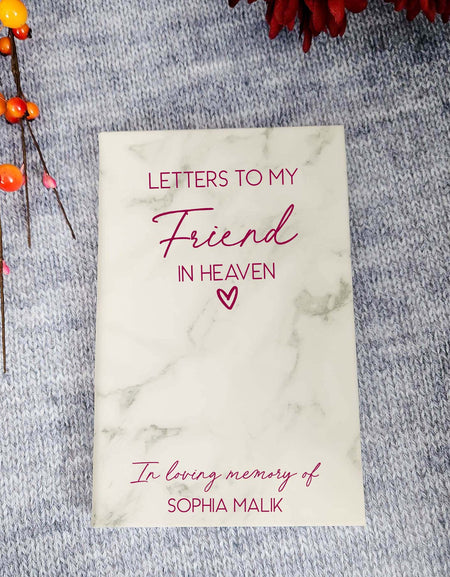 LETTERS TO MY
Friend
IN HEAVEN
In loving memory of
SOPHIA MALIK